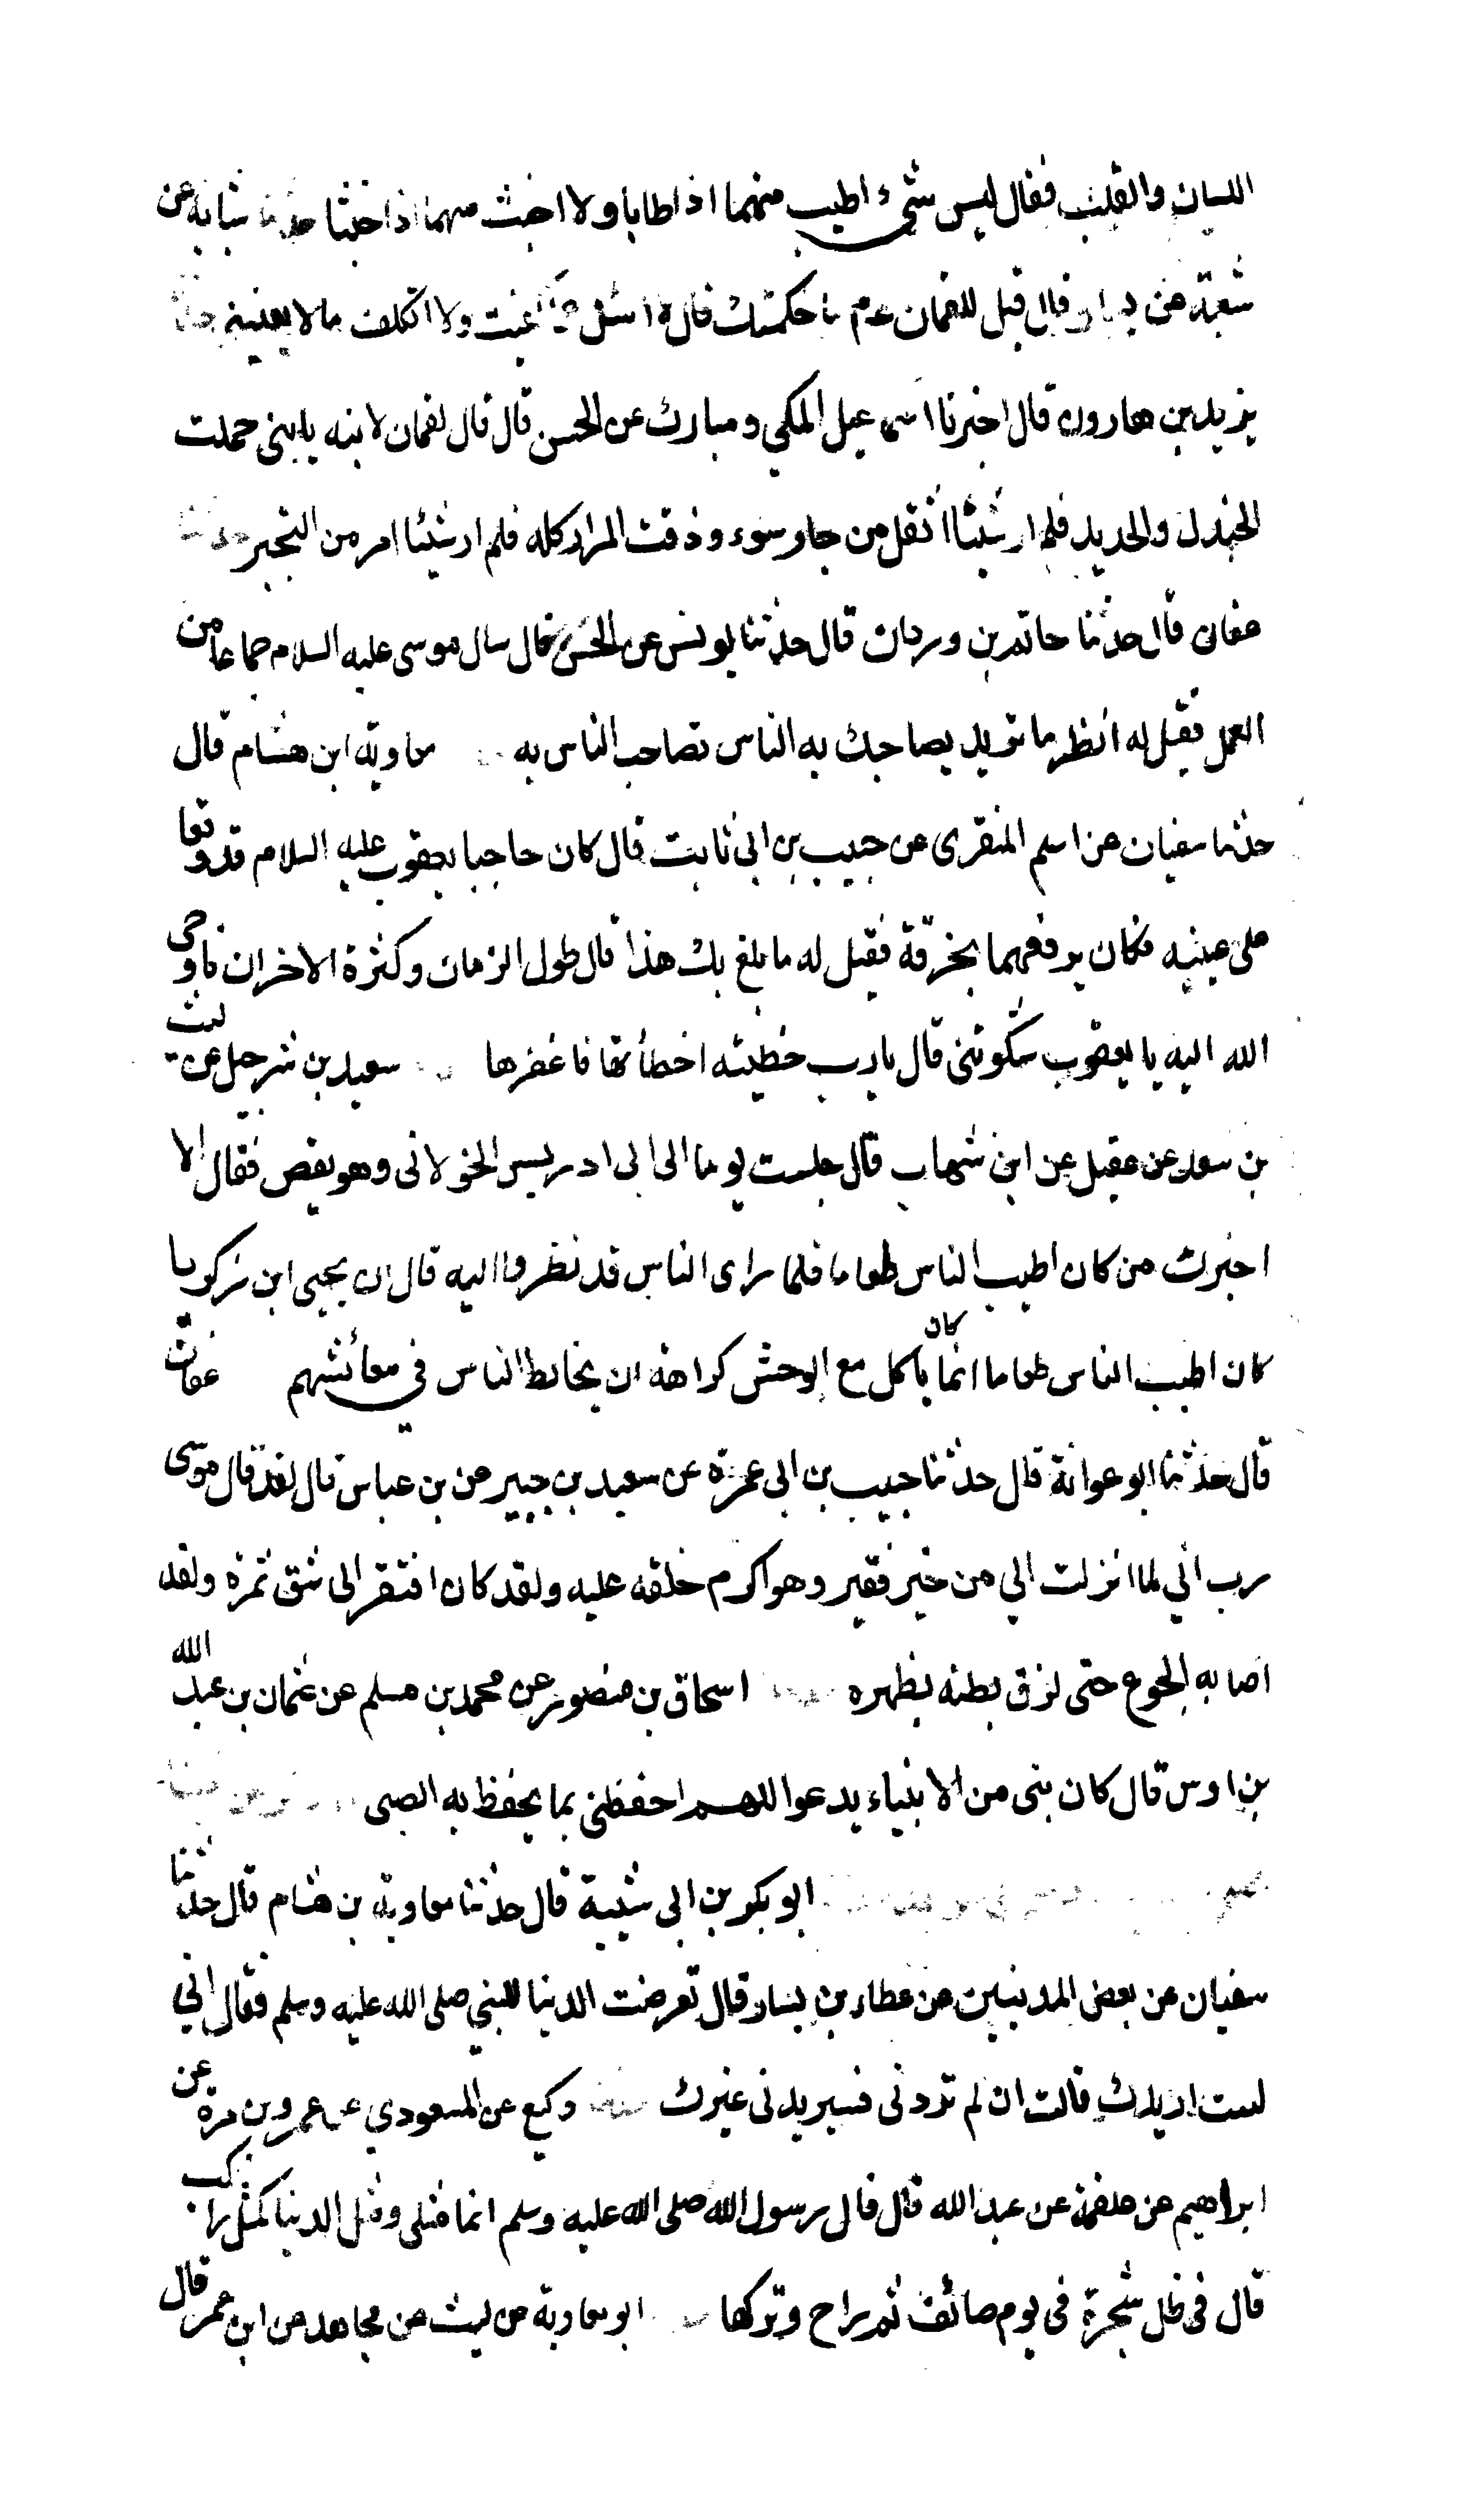 اللسان والقلب فقال ليس شيء اطيب منهما اذا طابا ولا اخبث منهما اذا خبثا حدثنا شبابة عن
شعبة عن قال قيل للقمان عم ما حكمتك قال لا اسئل عما ولا اتكلف ما لا يعنيني حدثنا
يزيد بن هارون قال اخبرنا اسمعيل المكي ومبارك عن الحسن قال قال لقمان لابنه يا بني حملت
الجندل والحديد فلم ار شيئا اثقل من جار سوء وذقت المرار كله فلم ار شيئا امر من التجبر حدثنا
عفان قال حدثنا حاتم بن وردان قال حدثنا يونس عن الحسن قال سال موسى عليه السلام جماعا من
العمل فقيل له انظر ما تريد يصاحبك به الناس تصاحب الناس به معاوية ابن هشام قال
حدثنا سفيان عن اسلم المنقرى عن حبيب بن ابى ثابت قال كان حاجبا يعقوب عليه السلام قد وقعا
على عينيه فكان يرفعهما بخرقة فقيل له ما بلغ بك هذا قال طول الزمان وكثرة الاخزان فاوحى
الله اليه يا يعقوب شكوتنى قال يارب خطيئة اخطأتها فاغفرها سعيد بن شرحبيل عن ليث
بن سعد عن عقيل عن ابن شهاب قال جلست يوما الى ابى ادريس الخولانى وهو يقص فقال الا
اخبرك من كان اطيب الناس طعاما فلما راى الناس قد نظروا اليه قال ان يحيى ابن زكريا
كان اطيب الناس طعاما انما كان ياكل مع الوحش كراهة ان يخالط الناس في معائشهم عفان
قال حدثنا ابو عوانة قال حدثنا حبيب بن ابى عمرة عن سعيد بن جبير عن بن عباس قال لقد قال موسى
رب اني لما انزلت الي من خير فقير وهو اكرم خلقه عليه ولقد كان افتقر الى شق تمرة ولقد
اصابه الجوع حتى لزق بطنه بظهره اسحاق بن منصور عن محمد بن مسلم عن عثمان بن عبد الله
بن اوس قال كان نبى من الانبياء يدعو اللهم احفظنى بما يحفظ به الصبى
ابو بكر بن ابى شيبة قال حدثنا معاوية بن هشام قال حدثنا
سفيان عن بعض المدنيين عن عطاء بن يسار قال تعرضت الدنيا للنبي صلى الله عليه وسلم فقال اني
لست اريدك قالت ان لم تردنى فسيريدنى غيرك وكيع عن المسعودي عن عمرو بن مرة عن
ابراهيم عن علقمة عن عبد الله قال قال رسول الله صلى الله عليه وسلم انما مثلى ومثل الدنيا كمثل راكب
قال فى ظل شجرة فى يوم صائف ثم راح وتركها ابو معاوية عن ليث عن مجاهد عن ابن عمر قال